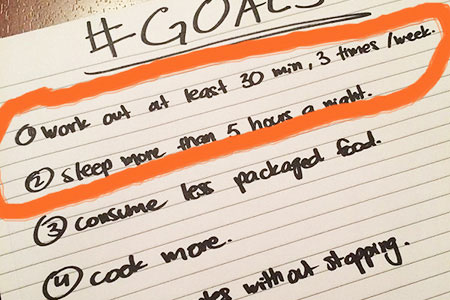 #GOALS
① Work out at least 30 min, 3 times/week.
② Sleep more than 5 hours a night.
③ consume less packaged food.
④ cook more.
without stopping.